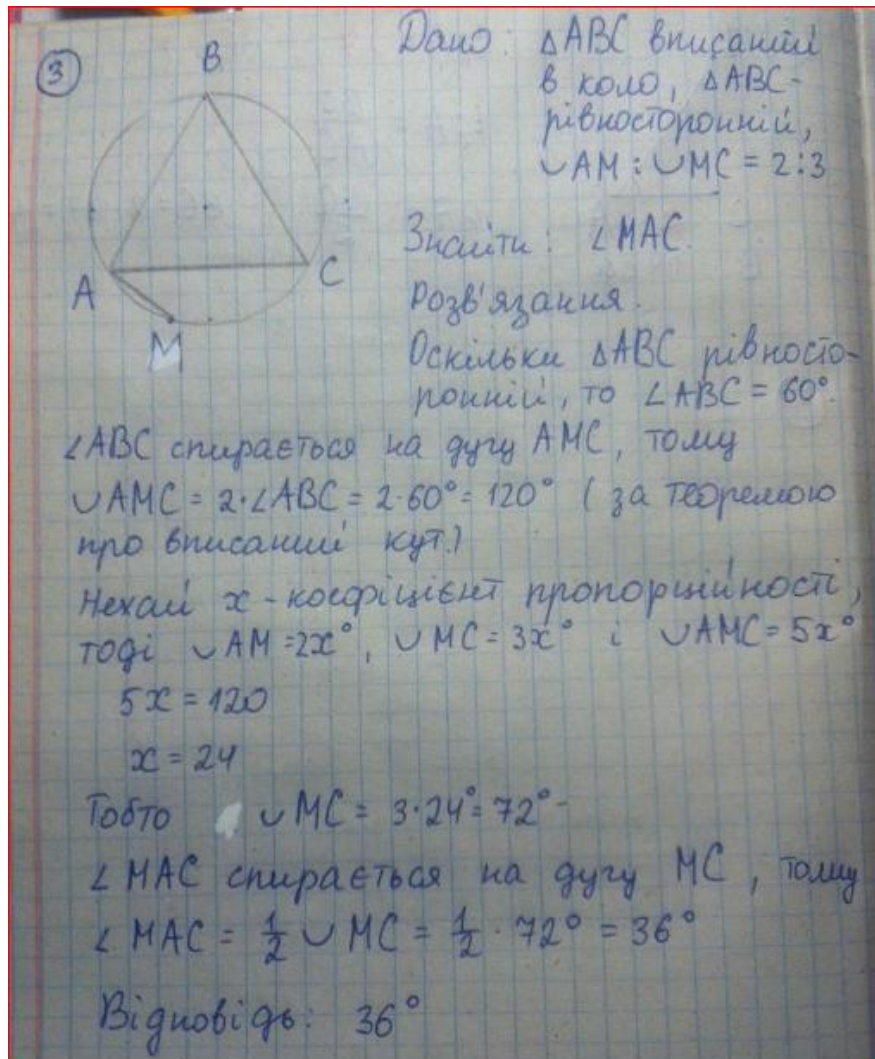 3
Дано: ΔABC вписаний
в коло, ΔABC-
рівносторонній,
∪AM : ∪MC = 2:3
B
A
C
M
Знайти: ∠MAC.
Розв'язання.
Оскільки ΔABC рівносто-
ронній, то ∠ABC = 60°.
∠ABC спирається на дугу AMC, тому
∪AMC = 2·∠ABC = 2·60° = 120° (за теоремою
про вписаний кут.)
Нехай x - коефіцієнт пропорційності,
тоді ∪AM = 2x°, ∪MC = 3x° і ∪AMC = 5x°
5x = 120
x = 24
Тобто ∪MC = 3·24° = 72°
∠MAC спирається на дугу MC, тому
∠MAC = 1/2 ∪MC = 1/2 · 72° = 36°
Відповідь: 36°